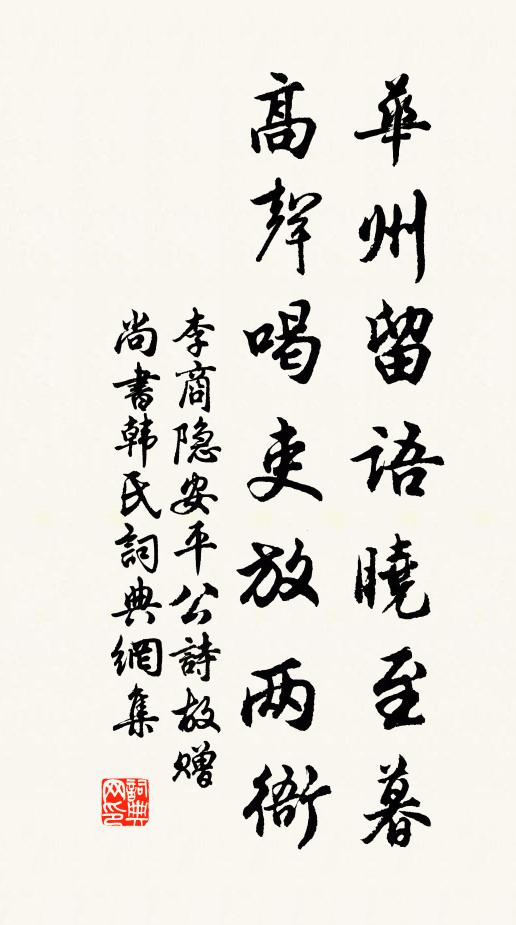 華州留語曉至暮
高聲喝吏放两衙
李商隐安平公詩故赠
尚書韩氏詞典網集
詞典网印